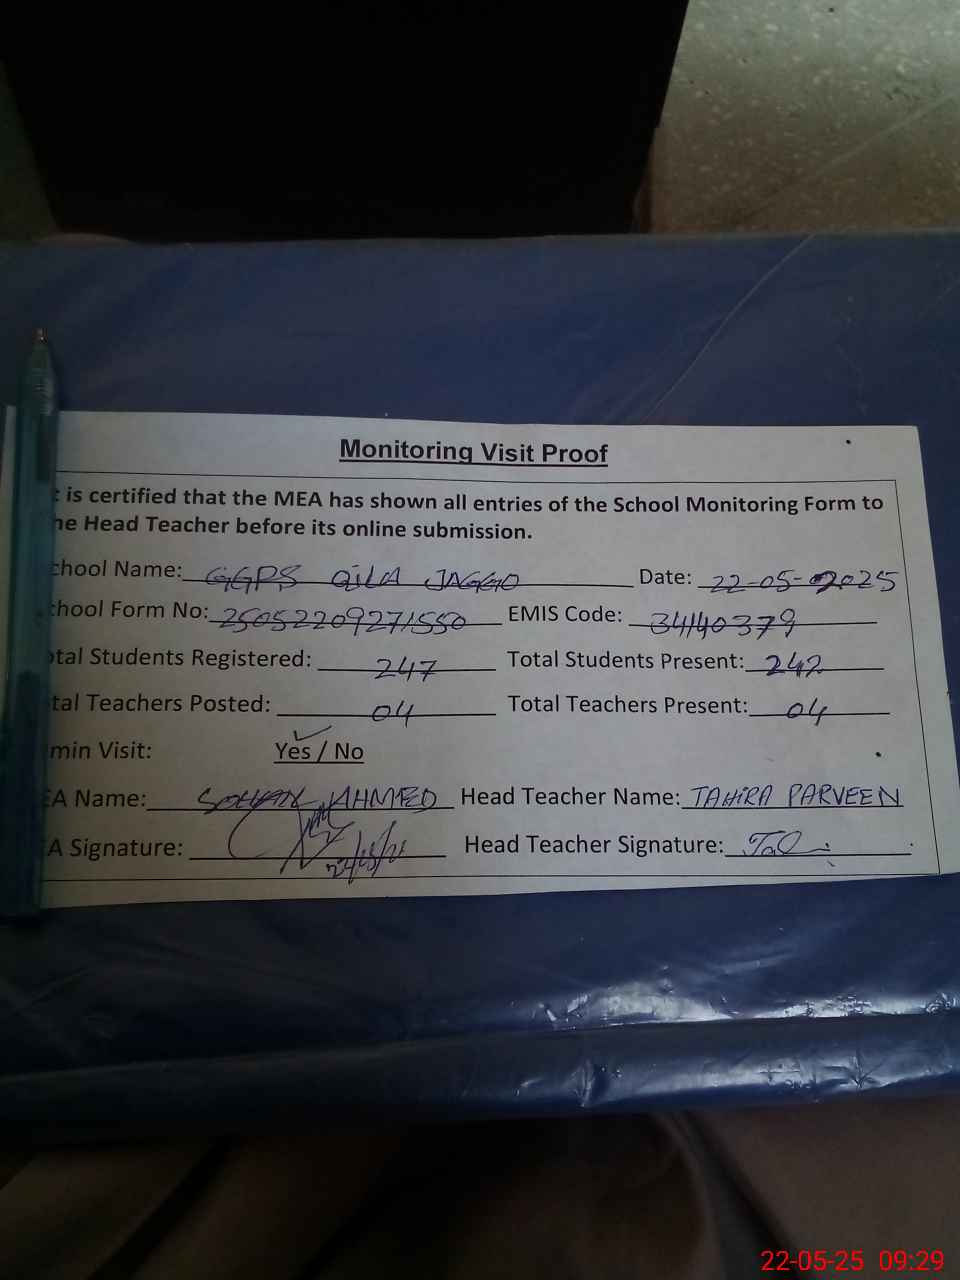 Monitoring Visit Proof
t is certified that the MEA has shown all entries of the School Monitoring Form to
he Head Teacher before its online submission.
chool Name: GGPS QILA JAGGO Date: 22-05-2025
chool Form No: 25052209271550 EMIS Code: 34140379
otal Students Registered: 247 Total Students Present: 242
tal Teachers Posted: 04 Total Teachers Present: 04
min Visit: Yes / No
EA Name: AHMED Head Teacher Name: TAHIRA PARVEEN
A Signature: Head Teacher Signature:
22-05-25 09:29